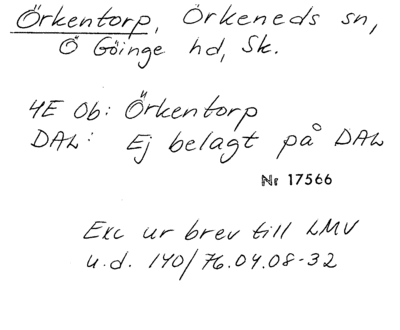 Örkentorp, Örkeneds sn,
Ö Göinge hd, Sk.
4E 0b: Örkentorp
DAL: Ej belagt på DAL
Nr 17566
Exc ur brev till LMV
u.d. 140/76.04.08-32